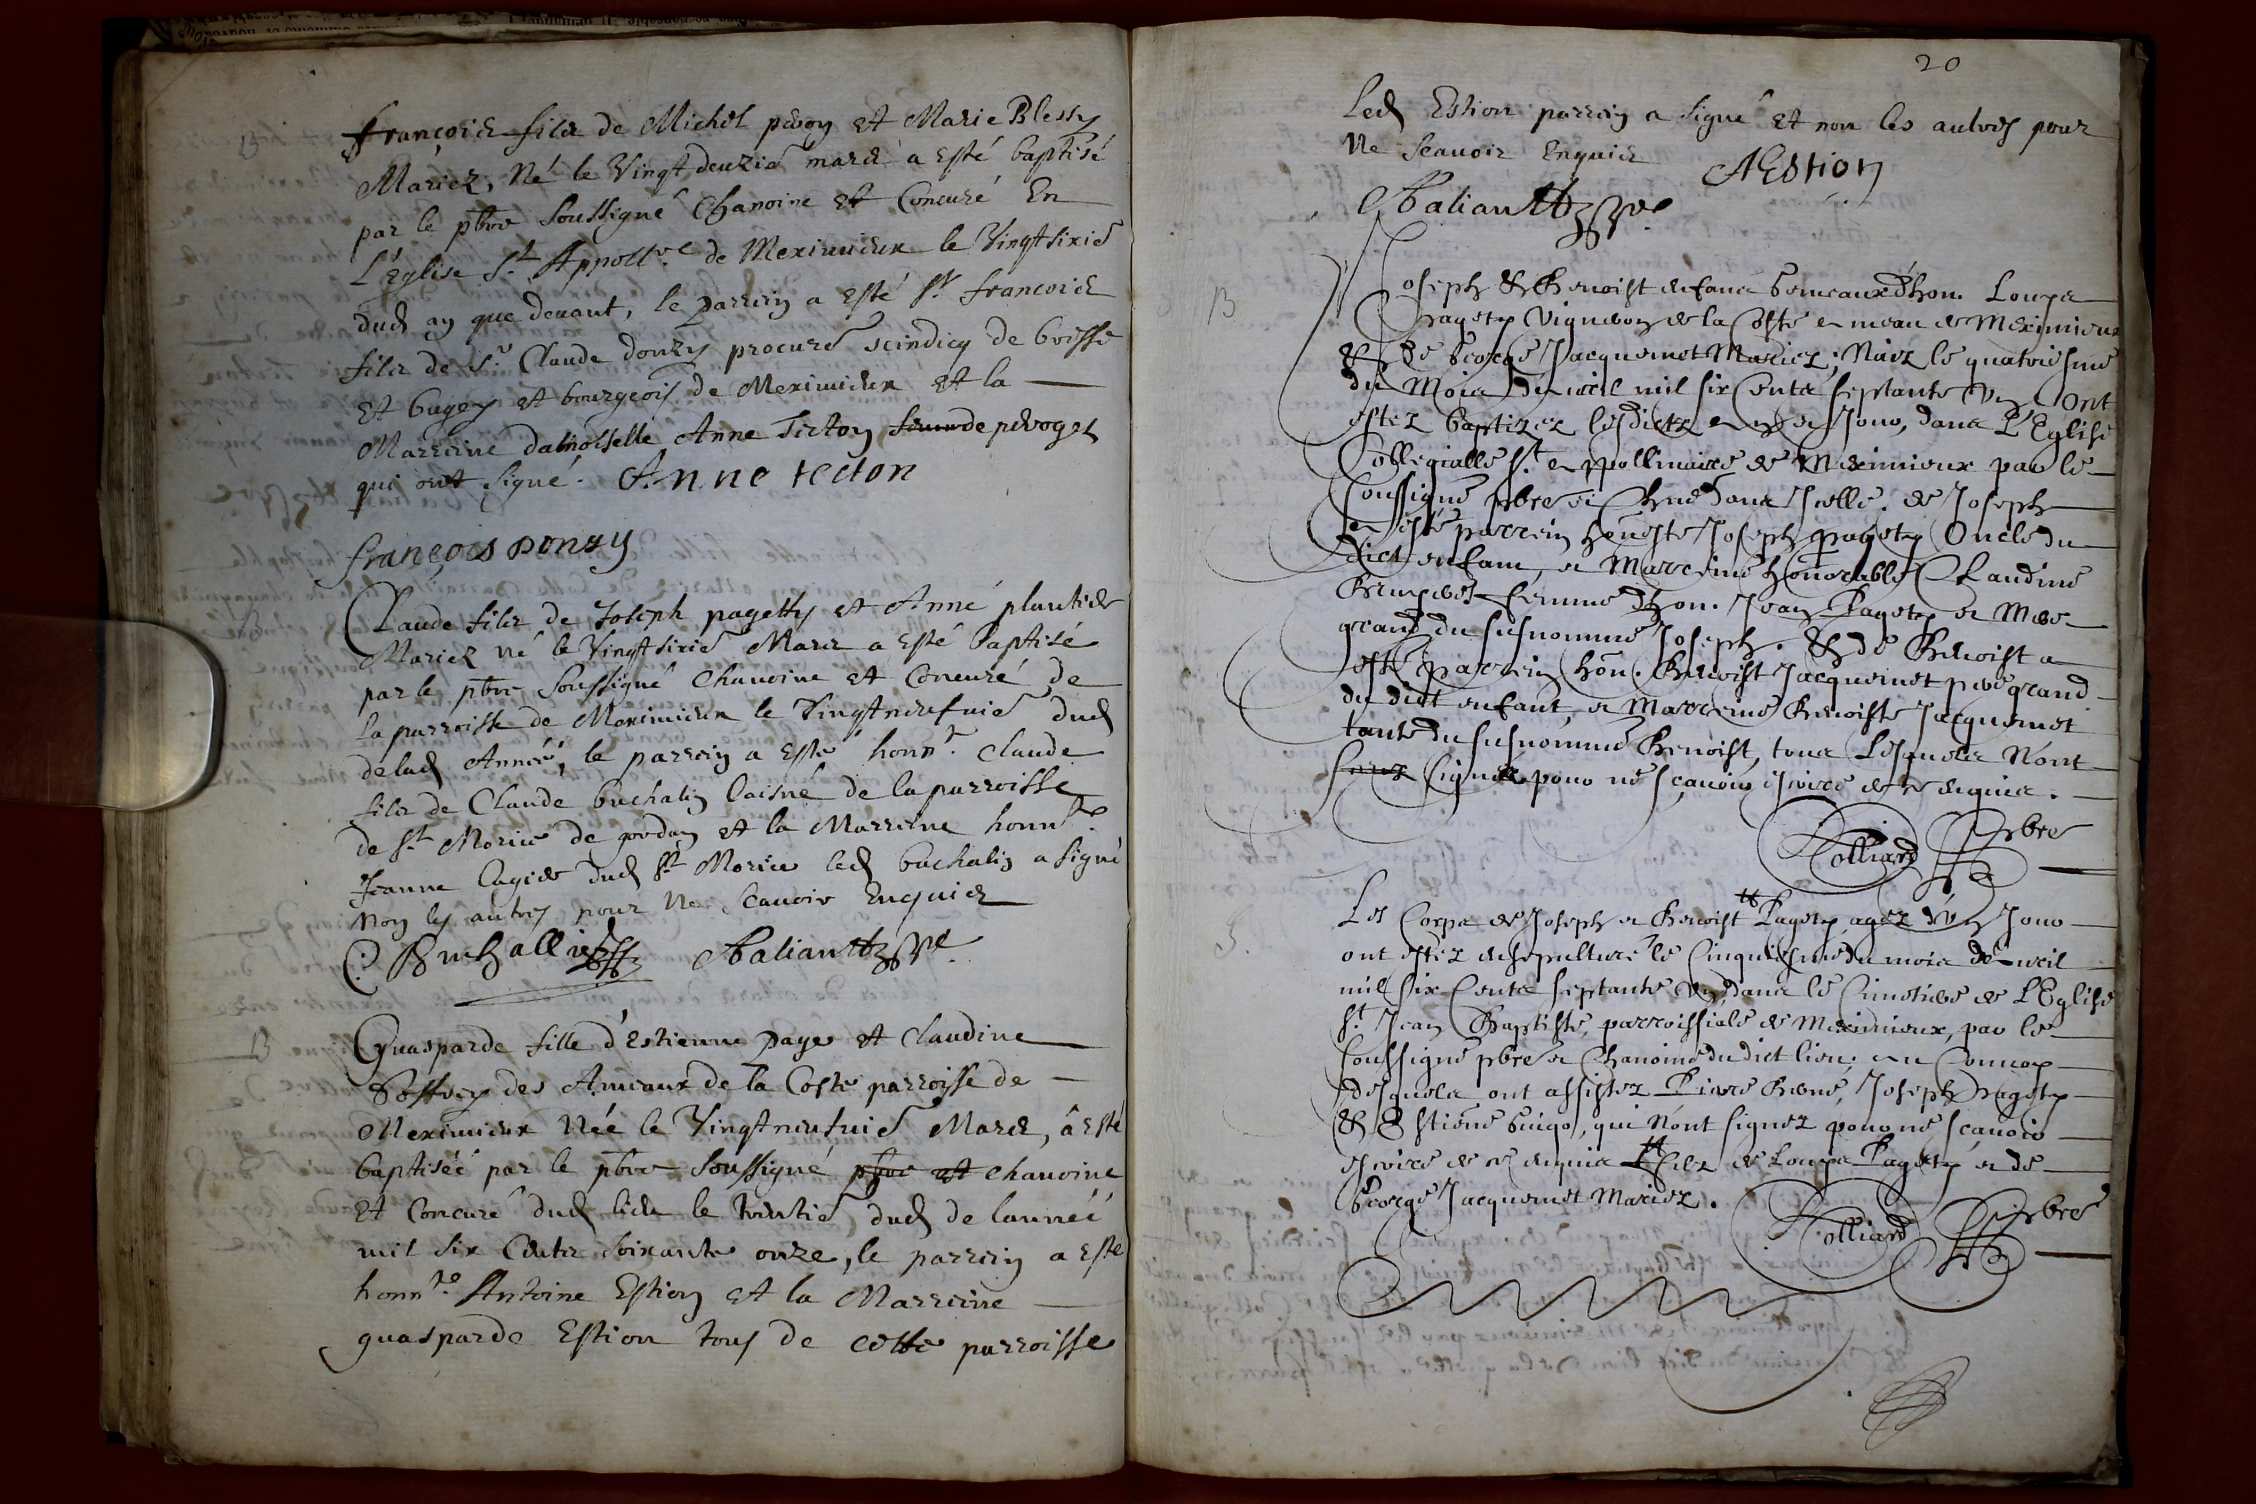 B
françois filz de Michel peroy et Marie Blessy
Mariez, Né le Vingt deuzie mars a esté baptisé
par le pbre soussigné Chanoine et Concuré En
L'église St Appollre de Meximieux le Vingt sixie
dud an que devant, le parrein a esté sr francois
filz de Sr Claude donzy procure scindicq de bresse
et bugey et bourgeois de Meximieux et la
Marreine damoiselle Anne Tecton de peroges
qui ont signé. Anne tecton
françois Donzy
Claude filz de Joseph pagetty et Anne plantier
Mariez né le Vingt sixie Mars a esté baptisé
par le pbre soussigné Chanoine et Concuré de
la parroisse de Meximieux le Vingt neufvie dud
de lad Année, le parrein a esté honnr Claude
filz de Claude buchalin laisné de la parroisse
de st Morice de gordan et la Marreine honnre
Jeanne dud st Morice led buchalin a signé
Non les autres pour Ne scavoir Enquis
C. Buchallin
B
Guasparde fille d'Estienne page et Claudine
des Ameaux de la Coste parroisse de
Meximieux Née le Vingt neufvie Mars, a esté
baptiséé par le pbre soussigné pbre et chanoine
et Concuré dud lieu le trentie dud de lannéé
mil six Centz soixante onze, le parrein a esté
honnre Antoine Estion et la Marreine
guasparde Estion tous de cette parroisse
20
Led Estion parrein a signé et non les autres pour
Ne scavoir Enquis AEstion
B
Joseph & Benoist enfans gemeaux d'hon. Loups
Pagety Vigneron de la Coste en meau de Meximieux
& de George Jacquemet Mariez; Naiz le quatriesme
du Mois d'avril mil six Cents septante un ont
estez baptizez lesdicts an & Jour, dans L'Eglise
Collegialle St Appollinaire de Meximieux par le
soussigné pbre et Curé dans Icelle. de Joseph
a esté parrein honeste Joseph pagety Oncle du
dict enfant, et Marreine honorable Claudine
femme d'hon. Jean Pagety et Mere
grand du susnommé Joseph. & de Benoist a
esté parrein hon. Benoist Jacquemet pere grand
du dict enfant, et Marreine Benoiste Jacquemet
tante du susnommé Benoist, tous Lesquels N'ont
signé pour ne scavoir escrire de ce enquis.
Rolliard pbre
S.
Les Corps de Joseph et Benoist Pagety agez d'un Jour
ont estez ensepulturé le Cinquiesme du mois d'avril
mil six Cents septante un dans le Cimetiere de L'Eglise
St Jean Baptiste, parroissiale de Meximieux, par le
soussigné pbre et Chanoine du dict lieu; au Convoy
desquels ont assistez Pierre René, Joseph Pagety
& Estiene guigo, qui N'ont signez pour ne scavoir
escrire de ce enquis filz de Loups Pagety et de
George Jacquemet Mariez.
Rolliard pbre